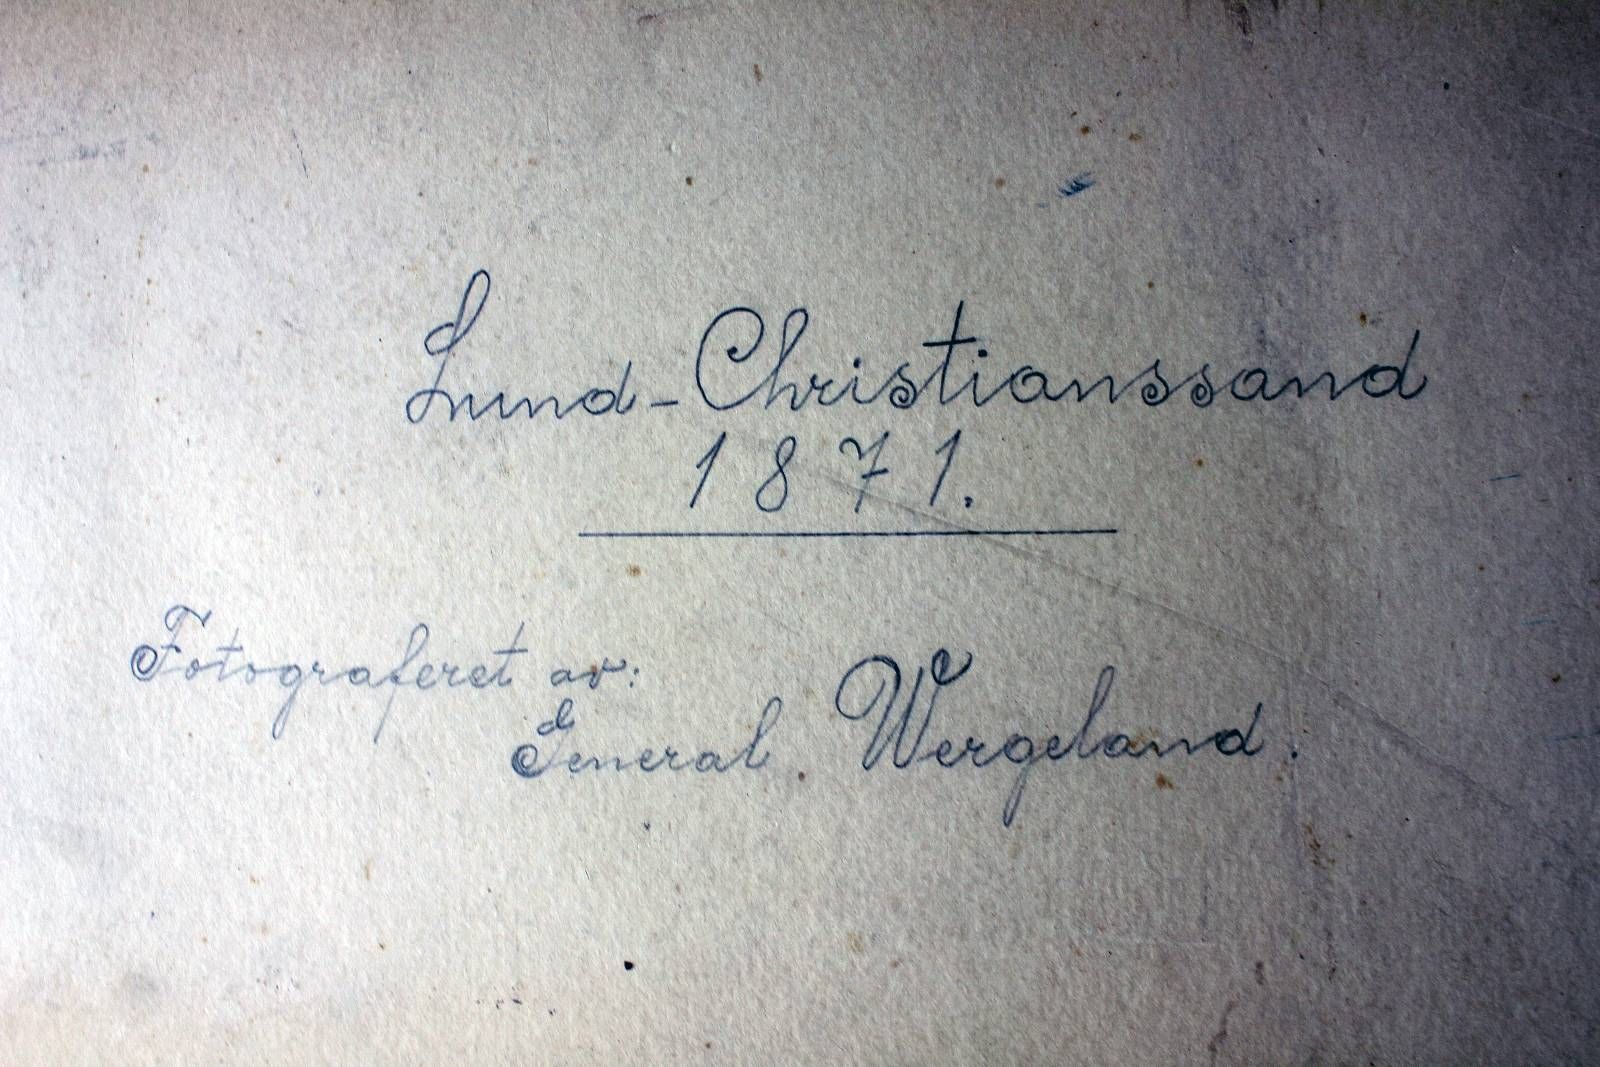 Lund-Christianssand
1871.
Fotograferet av:
General Wergeland.